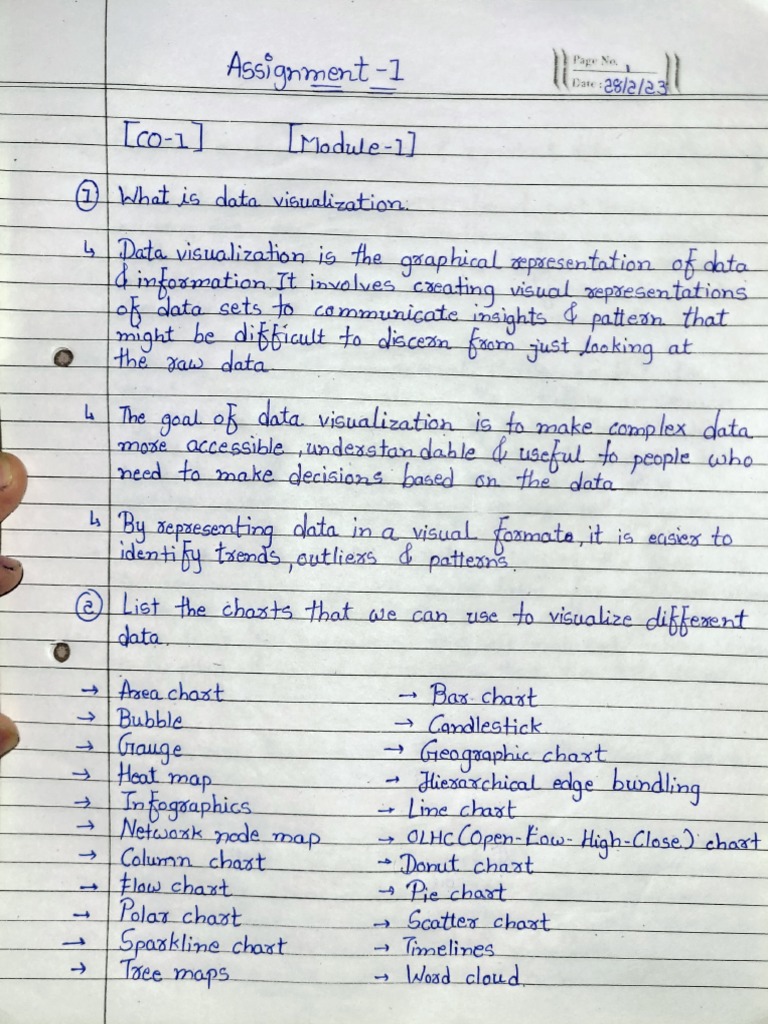 Assignment-1
Page No. 1
Date: 28/2/23
[CO-1] [Module-1]
① What is data visualization.
↳ Data visualization is the graphical representation of data
& information. It involves creating visual representations
of data sets to communicate insights & pattern that
might be difficult to discern from just looking at
the raw data.
↳ The goal of data visualization is to make complex data
more accessible, understandable & useful to people who
need to make decisions based on the data
↳ By representing data in a visual formate, it is easier to
identify trends, outliers & patterns.
② List the charts that we can use to visualize different
data.
→ Area chart → Bar chart
→ Bubble → Candlestick
→ Gauge → Geographic chart
→ Heat map → Hierarchical edge bundling
→ Infographics → Line chart
→ Network node map → OLHC (Open-Low-High-Close) chart
→ Column chart → Donut chart
→ Flow chart → Pie chart
→ Polar chart → Scatter chart
→ Sparkline chart → Timelines
→ Tree maps → Word cloud.